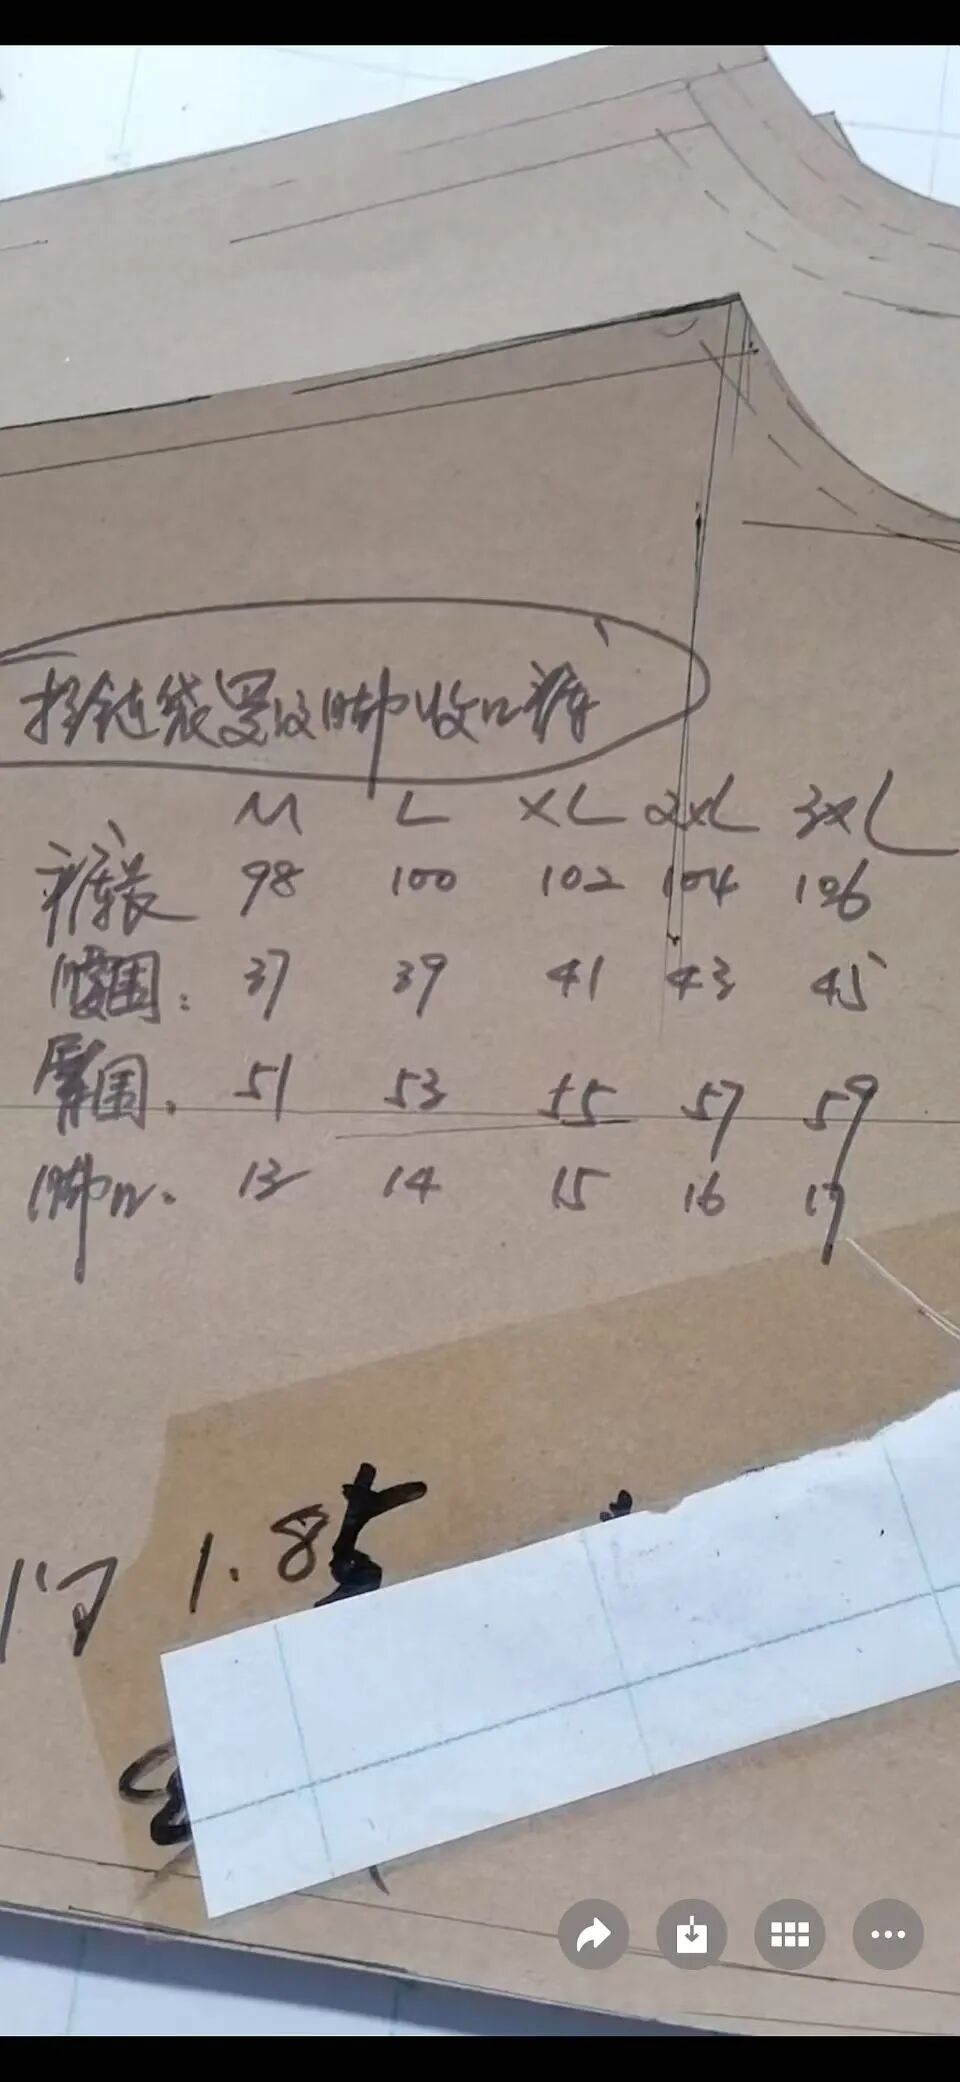 拉链袋罗纹脚收口裤
M L XL 2XL 3XL
裤长 98 100 102 104 106
腰围: 37 39 41 43 45
臀围. 51 53 55 57 59
脚口. 13 14 15 16 17
1.85